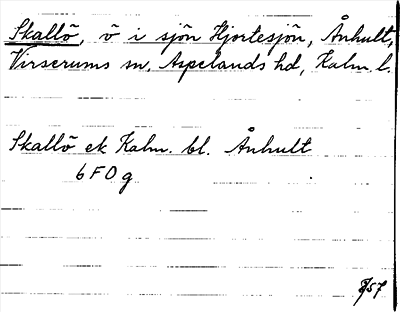 Skallö, ö i sjön Hjortesjön, Ånhult,
Virserums sn, Aspelands hd, Kalm. l.
Skallö ek Kalm. bl. Ånhult
6 F 0 g